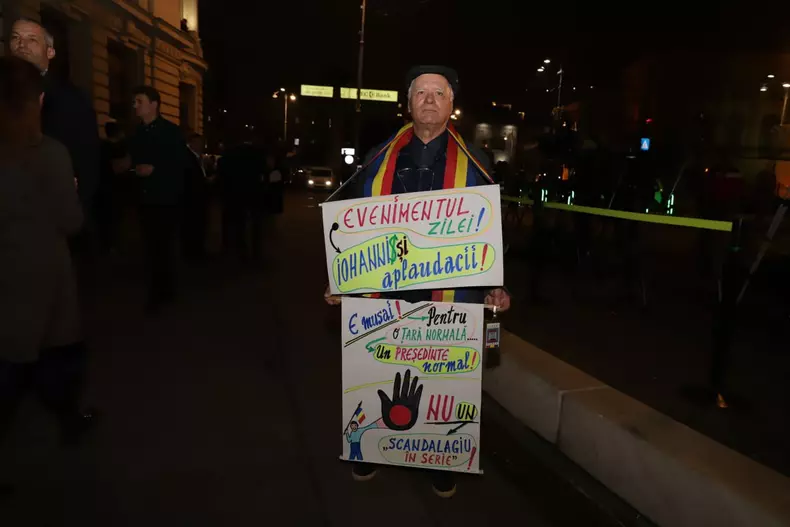 EVENIMENTUL
ZILEI!
IOHANNI$ și
aplaudacii!
E musai!
Pentru
O ȚARĂ NORMALĂ....
Un PREȘEDINTE
normal!
NU UN
„SCANDALAGIU
ÎN SERIE"!